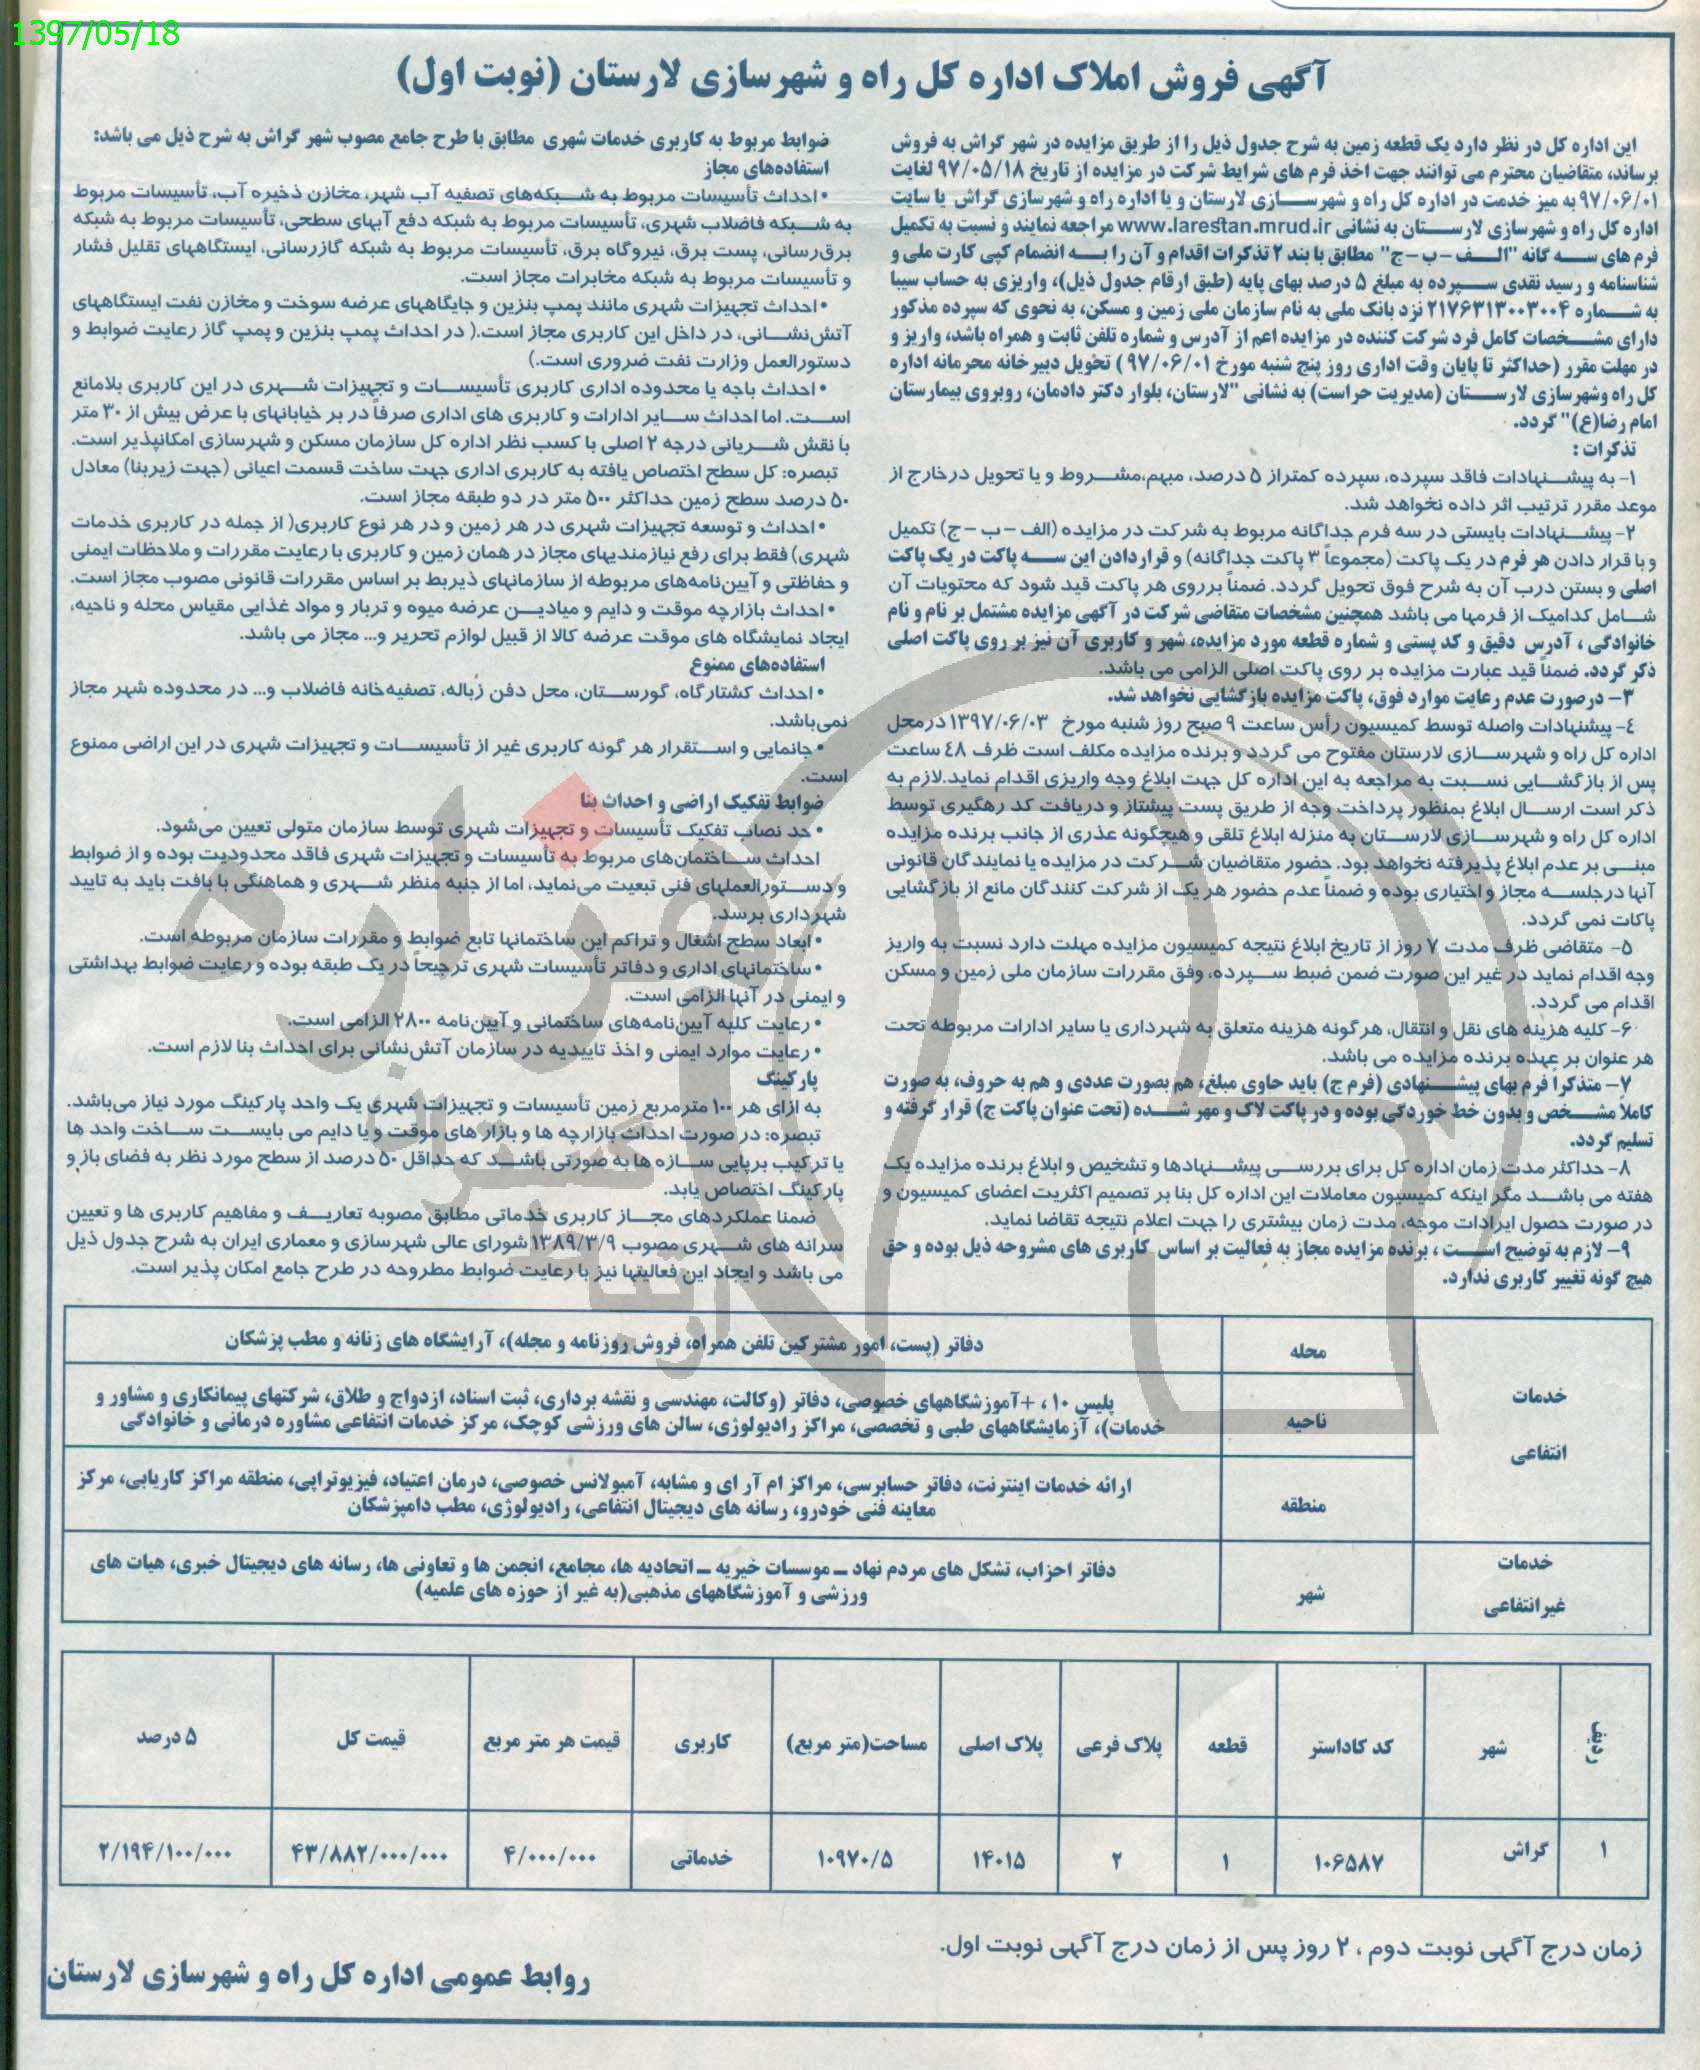 1397/05/18
آگهی فروش املاک اداره کل راه و شهرسازی لارستان (نوبت اول)
این اداره کل در نظر دارد یک قطعه زمین به شرح جدول ذیل را از طریق مزایده در شهر گراش به فروش
برساند، متقاضیان محترم می توانند جهت اخذ فرم های شرایط شرکت در مزایده از تاریخ ۹۷/۰۵/۱۸ لغایت
۹۷/۰۶/۰۱ به میز خدمت در اداره کل راه و شهرسازی لارستان و یا اداره راه و شهرسازی گراش یا سایت
اداره کل راه و شهرسازی لارستان به نشانی www.larestan.mrud.ir مراجعه نمایند و نسبت به تکمیل
فرم های سه گانه "الف - ب - ج" مطابق با بند ۲ تذکرات اقدام و آن را به انضمام کپی کارت ملی و
شناسنامه و رسید نقدی سپرده به مبلغ ۵ درصد بهای پایه (طبق ارقام جدول ذیل)، واریزی به حساب سیبا
به شماره ۲۱۷۶۳۱۳۰۰۳۰۰۴ نزد بانک ملی به نام سازمان ملی زمین و مسکن، به نحوی که سپرده مذکور
دارای مشخصات کامل فرد شرکت کننده در مزایده اعم از آدرس و شماره تلفن ثابت و همراه باشد، واریز و
در مهلت مقرر (حداکثر تا پایان وقت اداری روز پنج شنبه مورخ ۹۷/۰۶/۰۱) تحویل دبیرخانه محرمانه اداره
کل راه وشهرسازی لارستان (مدیریت حراست) به نشانی "لارستان، بلوار دکتر دادمان، روبروی بیمارستان
امام رضا(ع)" گردد.
تذکرات :
۱- به پیشنهادات فاقد سپرده، سپرده کمتراز ۵ درصد، مبهم،مشروط و یا تحویل درخارج از
موعد مقرر ترتیب اثر داده نخواهد شد.
۲- پیشنهادات بایستی در سه فرم جداگانه مربوط به شرکت در مزایده (الف - ب - ج) تکمیل
و با قرار دادن هر فرم در یک پاکت (مجموعاً ۳ پاکت جداگانه) و قراردادن این سه پاکت در یک پاکت
اصلی و بستن درب آن به شرح فوق تحویل گردد. ضمناً برروی هر پاکت قید شود که محتویات آن
شامل کدامیک از فرمها می باشد همچنین مشخصات متقاضی شرکت در آگهی مزایده مشتمل بر نام و نام
خانوادگی ، آدرس دقیق و کد پستی و شماره قطعه مورد مزایده، شهر و کاربری آن نیز بر روی پاکت اصلی
ذکر گردد. ضمناً قید عبارت مزایده بر روی پاکت اصلی الزامی می باشد.
۳- درصورت عدم رعایت موارد فوق، پاکت مزایده بازگشایی نخواهد شد.
٤- پیشنهادات واصله توسط کمیسیون رأس ساعت ۹ صبح روز شنبه مورخ ۱۳۹۷/۰۶/۰۳ درمحل
اداره کل راه و شهرسازی لارستان مفتوح می گردد و برنده مزایده مکلف است ظرف ٤٨ ساعت
پس از بازگشایی نسبت به مراجعه به این اداره کل جهت ابلاغ وجه واریزی اقدام نماید.لازم به
ذکر است ارسال ابلاغ بمنظور پرداخت وجه از طریق پست پیشتاز و دریافت کد رهگیری توسط
اداره کل راه و شهرسازی لارستان به منزله ابلاغ تلقی و هیچگونه عذری از جانب برنده مزایده
مبنی بر عدم ابلاغ پذیرفته نخواهد بود. حضور متقاضیان شرکت در مزایده یا نمایندگان قانونی
آنها درجلسه مجاز و اختیاری بوده و ضمناً عدم حضور هر یک از شرکت کنندگان مانع از بازگشایی
پاکات نمی گردد.
۵- متقاضی ظرف مدت ۷ روز از تاریخ ابلاغ نتیجه کمیسیون مزایده مهلت دارد نسبت به واریز
وجه اقدام نماید در غیر این صورت ضمن ضبط سپرده، وفق مقررات سازمان ملی زمین و مسکن
اقدام می گردد.
۶- کلیه هزینه های نقل و انتقال، هرگونه هزینه متعلق به شهرداری یا سایر ادارات مربوطه تحت
هر عنوان بر عهده برنده مزایده می باشد.
۷- متذکرا فرم بهای پیشنهادی (فرم ج) باید حاوی مبلغ، هم بصورت عددی و هم به حروف، به صورت
کاملاً مشخص و بدون خط خوردگی بوده و در پاکت لاک و مهر شده (تحت عنوان پاکت ج) قرار گرفته و
تسلیم گردد.
۸- حداکثر مدت زمان اداره کل برای بررسی پیشنهادها و تشخیص و ابلاغ برنده مزایده یک
هفته می باشد مگر اینکه کمیسیون معاملات این اداره کل بنا بر تصمیم اکثریت اعضای کمیسیون و
در صورت حصول ایرادات موجه، مدت زمان بیشتری را جهت اعلام نتیجه تقاضا نماید.
۹- لازم به توضیح است ، برنده مزایده مجاز به فعالیت بر اساس کاربری های مشروحه ذیل بوده و حق
هیچ گونه تغییر کاربری ندارد.
ضوابط مربوط به کاربری خدمات شهری مطابق با طرح جامع مصوب شهر گراش به شرح ذیل می باشد:
استفاده‌های مجاز
• احداث تأسیسات مربوط به شبکه‌های تصفیه آب شهر، مخازن ذخیره آب، تأسیسات مربوط
به شبکه فاضلاب شهری، تأسیسات مربوط به شبکه دفع آبهای سطحی، تأسیسات مربوط به شبکه
برق‌رسانی، پست برق، نیروگاه برق، تأسیسات مربوط به شبکه گازرسانی، ایستگاههای تقلیل فشار
و تأسیسات مربوط به شبکه مخابرات مجاز است.
• احداث تجهیزات شهری مانند پمپ بنزین و جایگاههای عرضه سوخت و مخازن نفت ایستگاههای
آتش‌نشانی، در داخل این کاربری مجاز است.( در احداث پمپ بنزین و پمپ گاز رعایت ضوابط و
دستورالعمل وزارت نفت ضروری است.)
• احداث باجه یا محدوده اداری کاربری تأسیسات و تجهیزات شهری در این کاربری بلامانع
است. اما احداث سایر ادارات و کاربری های اداری صرفاً در بر خیابانهای با عرض بیش از ۳۰ متر
با نقش شریانی درجه ۲ اصلی با کسب نظر اداره کل سازمان مسکن و شهرسازی امکانپذیر است.
تبصره: کل سطح اختصاص یافته به کاربری اداری جهت ساخت قسمت اعیانی (جهت زیربنا) معادل
۵۰ درصد سطح زمین حداکثر ۵۰۰ متر در دو طبقه مجاز است.
• احداث و توسعه تجهیزات شهری در هر زمین و در هر نوع کاربری( از جمله در کاربری خدمات
شهری) فقط برای رفع نیازمندیهای مجاز در همان زمین و کاربری با رعایت مقررات و ملاحظات ایمنی
و حفاظتی و آیین‌نامه‌های مربوطه از سازمانهای ذیربط بر اساس مقررات قانونی مصوب مجاز است.
• احداث بازارچه موقت و دایم و میادین عرضه میوه و تربار و مواد غذایی مقیاس محله و ناحیه،
ایجاد نمایشگاه های موقت عرضه کالا از قبیل لوازم تحریر و... مجاز می باشد.
استفاده‌های ممنوع
• احداث کشتارگاه، گورستان، محل دفن زباله، تصفیه‌خانه فاضلاب و... در محدوده شهر مجاز
نمی‌باشد.
• جانمایی و استقرار هر گونه کاربری غیر از تأسیسات و تجهیزات شهری در این اراضی ممنوع
است.
ضوابط تفکیک اراضی و احداث بنا
• حد نصاب تفکیک تأسیسات و تجهیزات شهری توسط سازمان متولی تعیین می‌شود.
احداث ساختمان‌های مربوط به تأسیسات و تجهیزات شهری فاقد محدودیت بوده و از ضوابط
و دستورالعملهای فنی تبعیت می‌نماید، اما از جنبه منظر شهری و هماهنگی با بافت باید به تایید
شهرداری برسد.
• ابعاد سطح اشغال و تراکم این ساختمانها تابع ضوابط و مقررات سازمان مربوطه است.
• ساختمانهای اداری و دفاتر تأسیسات شهری ترجیحاً در یک طبقه بوده و رعایت ضوابط بهداشتی
و ایمنی در آنها الزامی است.
• رعایت کلیه آیین‌نامه‌های ساختمانی و آیین‌نامه ۲۸۰۰ الزامی است.
• رعایت موارد ایمنی و اخذ تاییدیه در سازمان آتش‌نشانی برای احداث بنا لازم است.
پارکینگ
به ازای هر ۱۰۰ مترمربع زمین تأسیسات و تجهیزات شهری یک واحد پارکینگ مورد نیاز می‌باشد.
تبصره: در صورت احداث بازارچه ها و بازار های موقت و یا دایم می بایست ساخت واحد ها
یا ترکیب برپایی سازه ها به صورتی باشد که حداقل ۵۰ درصد از سطح مورد نظر به فضای باز و
پارکینگ اختصاص یابد.
ضمنا عملکردهای مجاز کاربری خدماتی مطابق مصوبه تعاریف و مفاهیم کاربری ها و تعیین
سرانه های شهری مصوب ۱۳۸۹/۳/۹ شورای عالی شهرسازی و معماری ایران به شرح جدول ذیل
می باشد و ایجاد این فعالیتها نیز با رعایت ضوابط مطروحه در طرح جامع امکان پذیر است.
خدمات انتفاعی
محله
دفاتر (پست، امور مشترکین تلفن همراه، فروش روزنامه و مجله)، آرایشگاه های زنانه و مطب پزشکان
ناحیه
پلیس ۱۰ ، +آموزشگاههای خصوصی، دفاتر (وکالت، مهندسی و نقشه برداری، ثبت اسناد، ازدواج و طلاق، شرکتهای پیمانکاری و مشاور و
خدمات)، آزمایشگاههای طبی و تخصصی، مراکز رادیولوژی، سالن های ورزشی کوچک، مرکز خدمات انتفاعی مشاوره درمانی و خانوادگی
منطقه
ارائه خدمات اینترنت، دفاتر حسابرسی، مراکز ام آر ای و مشابه، آمبولانس خصوصی، درمان اعتیاد، فیزیوتراپی، منطقه مراکز کاریابی، مرکز
معاینه فنی خودرو، رسانه های دیجیتال انتفاعی، رادیولوژی، مطب دامپزشکان
خدمات غیرانتفاعی
شهر
دفاتر احزاب، تشکل های مردم نهاد – موسسات خیریه – اتحادیه ها، مجامع، انجمن ها و تعاونی ها، رسانه های دیجیتال خبری، هیات های
ورزشی و آموزشگاههای مذهبی(به غیر از حوزه های علمیه)
ردیف شهر کد کاداستر قطعه پلاک فرعی پلاک اصلی مساحت(متر مربع) کاربری قیمت هر متر مربع قیمت کل ۵ درصد
۱ گراش ۱۰۶۵۸۷ ۱ ۲ ۱۴۰۱۵ ۱۰۹۷۰/۵ خدماتی ۴/۰۰۰/۰۰۰ ۴۳/۸۸۲/۰۰۰/۰۰۰ ۲/۱۹۴/۱۰۰/۰۰۰
زمان درج آگهی نوبت دوم ، ۲ روز پس از زمان درج آگهی نوبت اول.
روابط عمومی اداره کل راه و شهرسازی لارستان